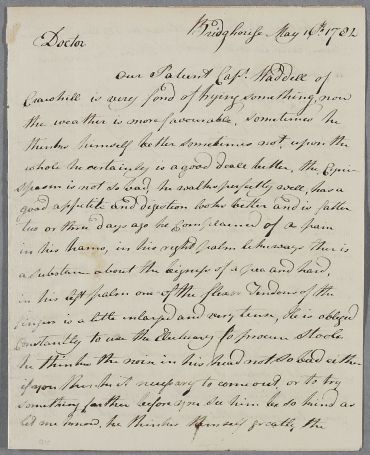 Bridghouse May 16th. 1782
Doctor
Our Patient Capt. Waddell of
Crawhill is very fond of trying something, now
the weather is more favourable. Sometimes he
thinks himself better sometimes not, upon the
whole he certainly is a good deal better, the Cynic
Spasm is not so bad, he walks perfectly well, has a
good appetite and digestion looks better and is fatter
two or three days ago he complained of a pain
in his hams, in his right palm likeways there is
a substance about the bigness of a pea and hard,
in his left palm one of the flexor Tendons of the
fingers is a little enlarged and very tense, He is obliged
constantly to use the Electuary to procure Stools
he thinks the noise in his head not so bad either
if you think it necessary to come out, or to try
something farther before you see him be so kind as
let me know, he thinks himself greatly the